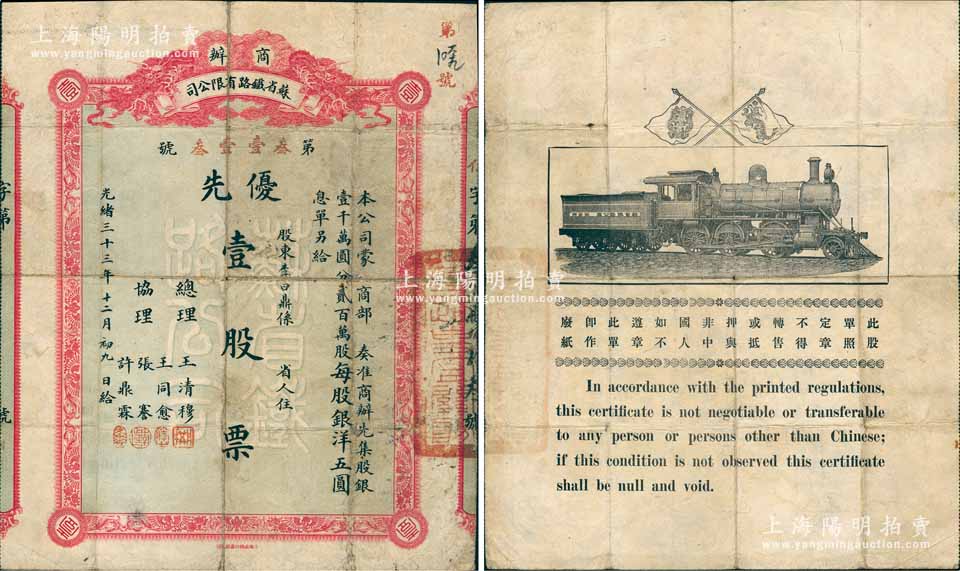 上海陽明拍賣
www.yangmingauction.com
商辦
蘇省鐵路有限公司
第叁壹壹叁號
優先
壹股票
本公司蒙 商部 奏准商辦先集股銀
壹千萬圓分貳百萬股每股銀洋五圓
息單另給
股東李日鼎係 省人住
總理 王清穆
協理 王同愈
張謇
許鼎霖
光緒三十三年十二月初九日給
第
號
字第
號
上海陽明拍賣
www.yangmingauction.com
此單定不轉或押非國如遵此即廢
股照章得售抵與中人不章單作紙
In accordance with the printed regulations,
this certificate is not negotiable or transferable
to any person or persons other than Chinese;
if this condition is not observed this certificate
shall be null and void.
上海陽明拍賣
www.yangmingauction.com
上海陽明拍賣
www.yangmingauction.com